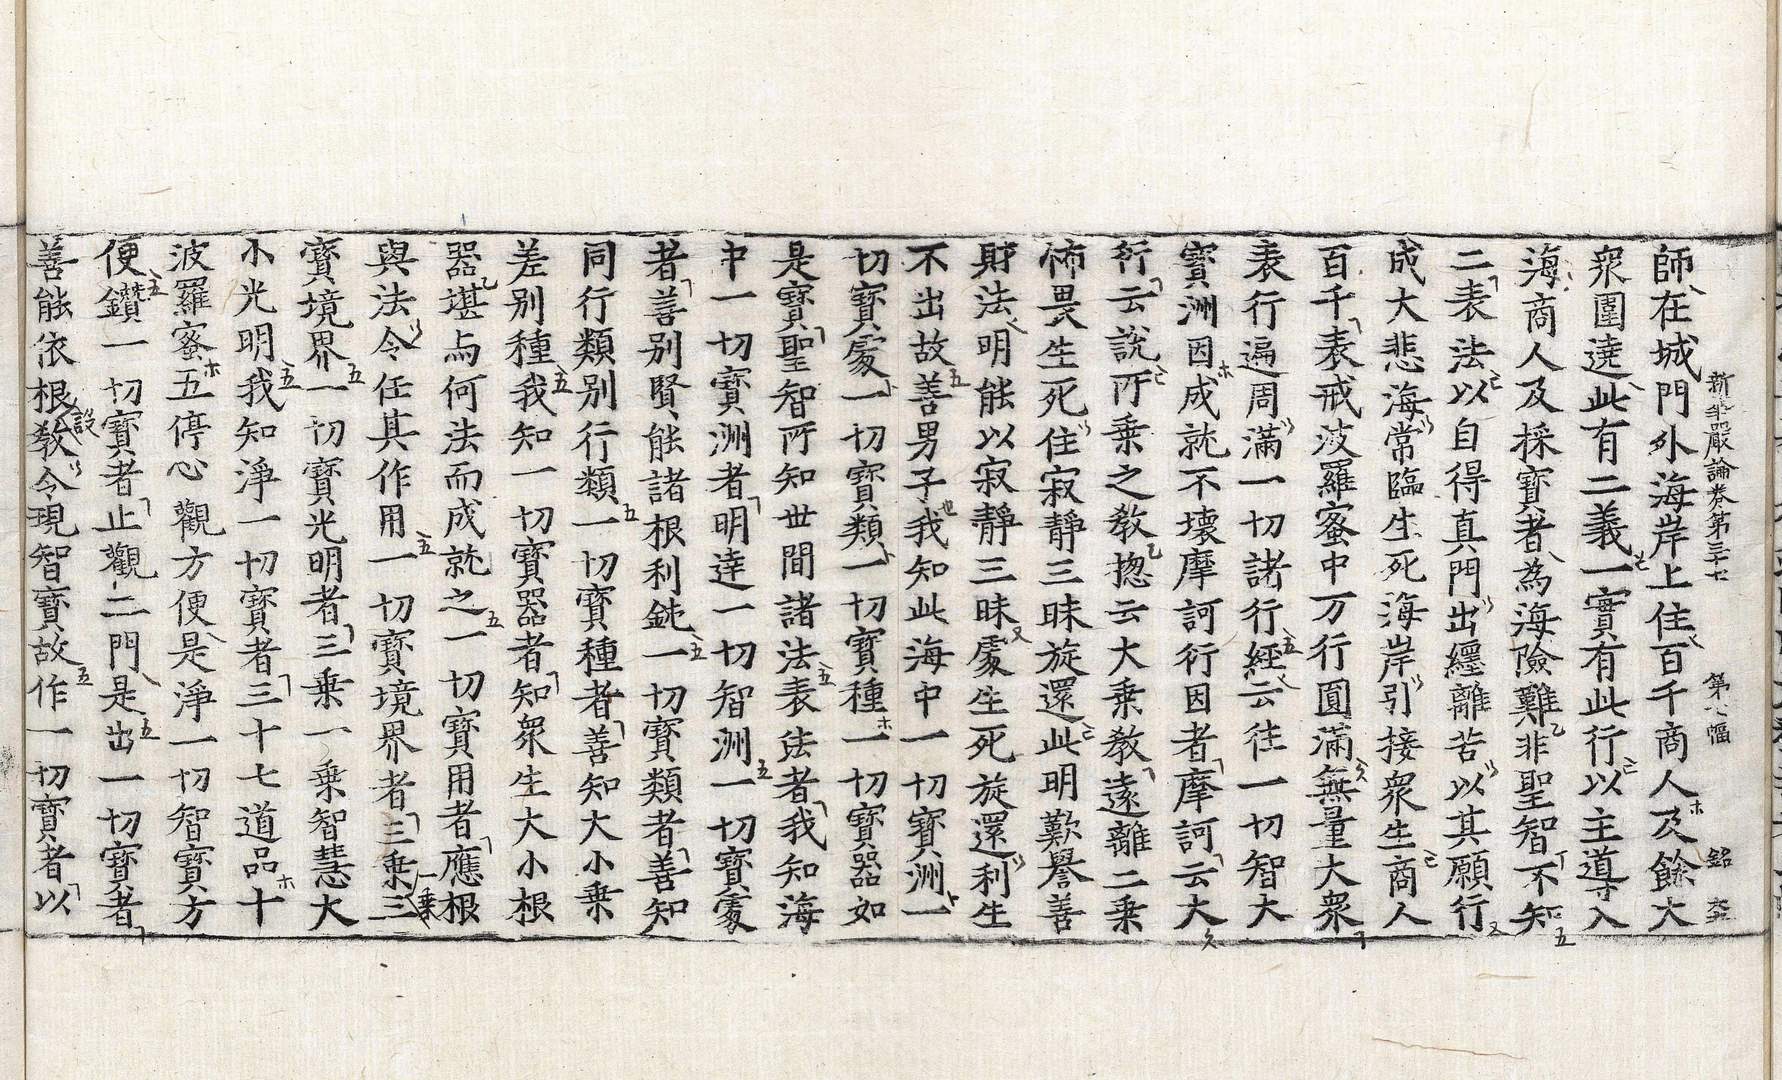 新華嚴論卷第三十七 第八幅 銘
師在城門外海岸上住百千商人及餘大
衆圍遶此有二義一實有此行以主導入
海商人及採寶者為海險難非聖智不知
二表法以自得真門出纒離苦以其願行
成大悲海常臨生死海岸引接衆生商人
百千表戒波羅蜜中万行圓滿無量大衆
表行遍周滿一切諸行經云往一切智大
寶洲因成就不壞摩訶衍因者摩訶云大
衍云說所乗之教揔云大乗教遠離二乗
怖畏生死住寂静三昧旋還此明歎譽善
財法明能以寂靜三昧處生死旋還利生
不出故善男子我知此海中一切寶洲一
切寶處一切寶類一切寶種一切寶器如
是寶聖智所知世間諸法表法者我知海
中一切寶洲者明達一切智洲一切寶處
者善别賢能諸根利鈍一切寶類者善知
同行類别行類一切寶種者善知大小乗
差别種我知一切寶器者知衆生大小根
器堪与何法而成就之一切寶用者應根
與法令任其作用一切寶境界者三乗一乗三
寶境界一切寶光明者三乗一乗智慧大
小光明我知淨一切寶者三十七道品十
波羅蜜五停心觀方便是淨一切智寶方
便鑽一切寶者止觀二門是出一切寶者
善能依根設教令現智寶故作一切寶者以